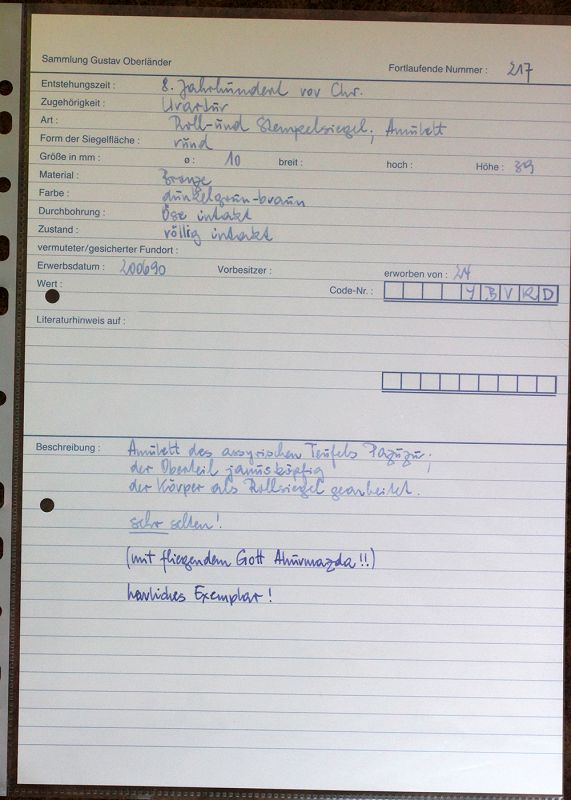 Sammlung Gustav Oberländer
Fortlaufende Nummer : 217
Entstehungszeit : 8. Jahrhundert vor Chr.
Zugehörigkeit : Urartur
Art : Roll- und Stempelsiegel, Amulett
Form der Siegelfläche : rund
Größe in mm : ø : 10 breit : hoch : Höhe : 39
Material : Bronze
Farbe : dunkelgrün-braun
Durchbohrung : Öse intakt
Zustand : völlig intakt
vermuteter/gesicherter Fundort :
Erwerbsdatum : 200690 Vorbesitzer : erworben von : 24
Wert : Code-Nr. : Y B V R D
Literaturhinweis auf :
Beschreibung : Amulett des assyrischen Teufels Pazuzu,
der Oberteil januskopfig
der Körper als Rollsiegel gearbeitet.
sehr selten!
(mit fliegendem Gott Ahurmazda!!)
herrliches Exemplar!